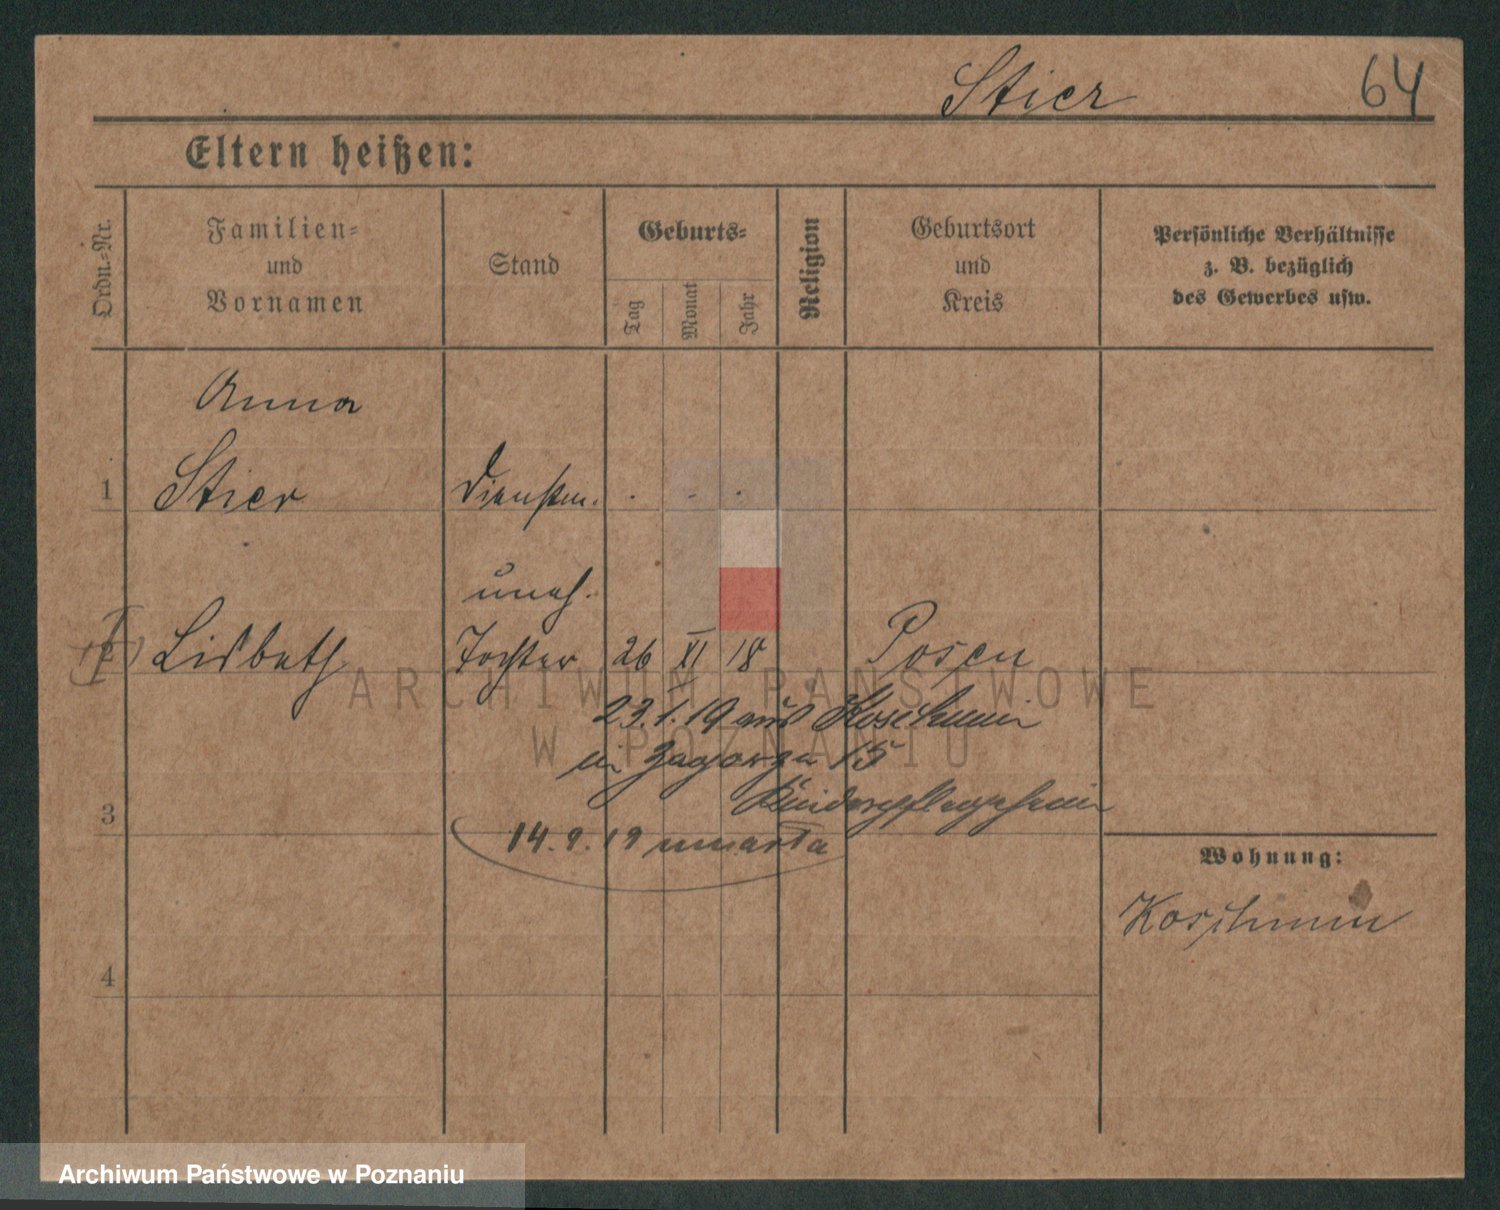 Stier 64
Eltern heißen:
Ordn.-Nr.
Familien-
und
Vornamen
Stand
Geburts-
Tag
Monat
Jahr
Religion
Geburtsort
und
Kreis
Persönliche Verhältnisse
z. B. bezüglich
des Gewerbes usw.
Anna
1 Stier Dienstm. . . .
uneh.
2 Lisbeth Tochter 26 XI 18 Posen
23.1.19 aus Koschmin
in Zagorze 15
3 Kinderpflegeheim
14.9.19 umarła
Wohnung:
Koschmin
4
ARCHIWUM PAŃSTWOWE
W POZNANIU
Archiwum Państwowe w Poznaniu